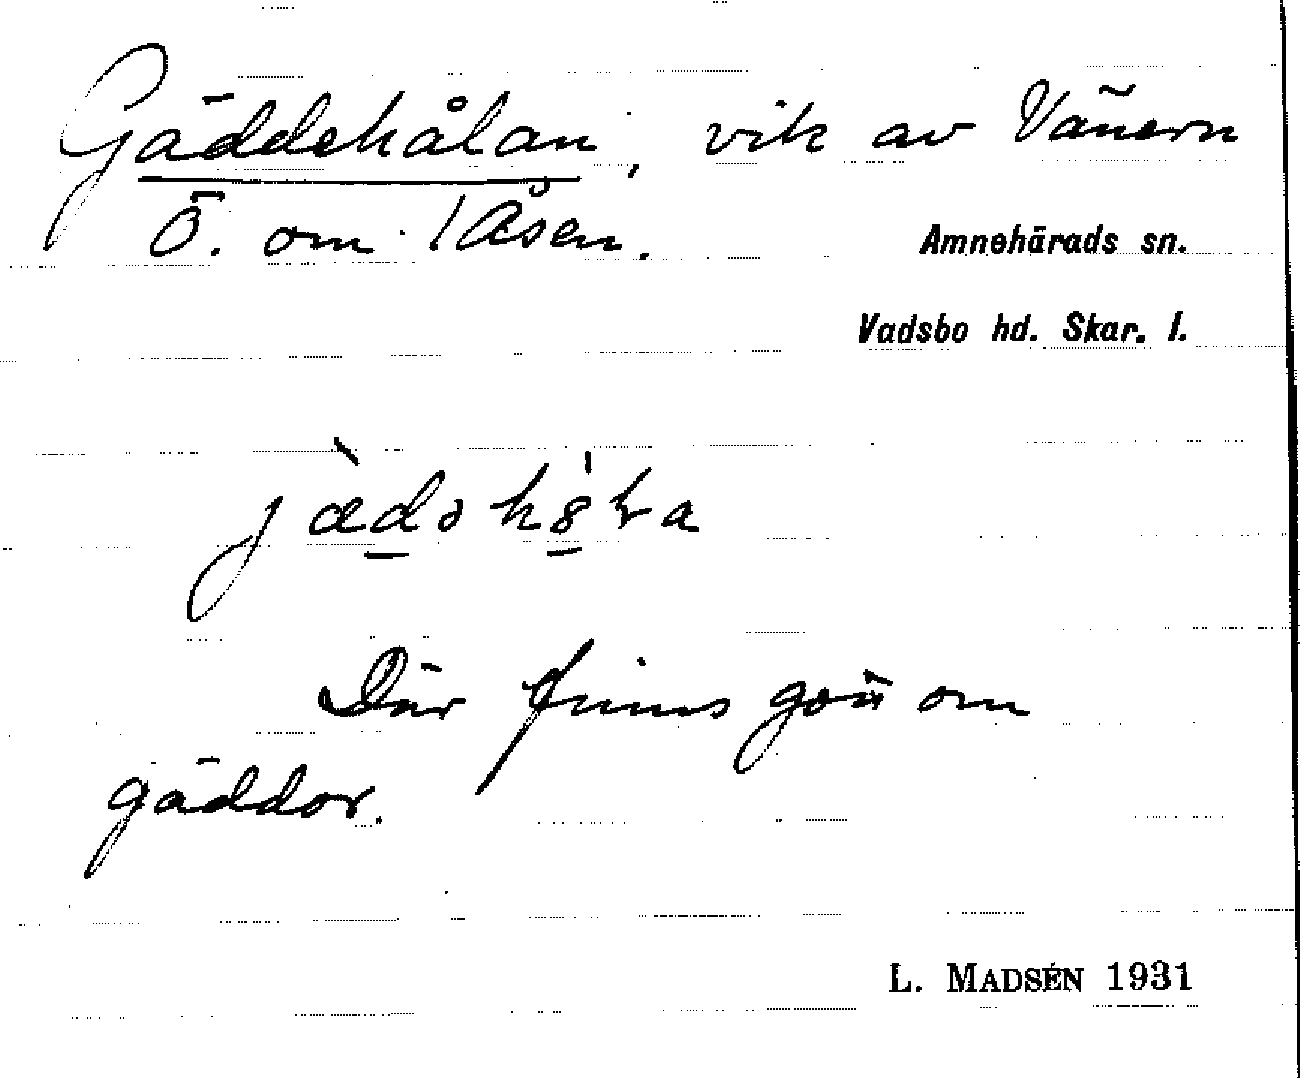 Gäddehålan, vik av Vänern
Ö. om Åsen.
Amnehärads sn.
Vadsbo hd. Skar. l.
Där finns gott om
gäddor.
L. MADSÉN 1931